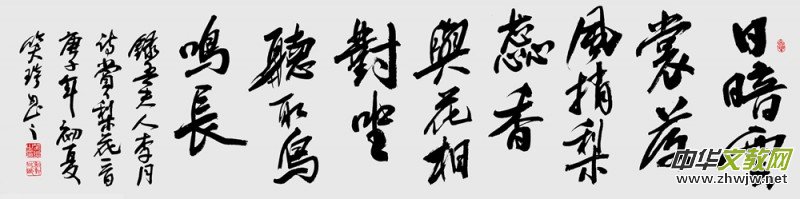 日暗雲
裳落
風捎梨
蕊香
與花相
對坐
聽取鳥
鳴長
錄吾夫人李月
诗賞梨花一首
庚子年初夏
中华文教网
www.zhwjw.net